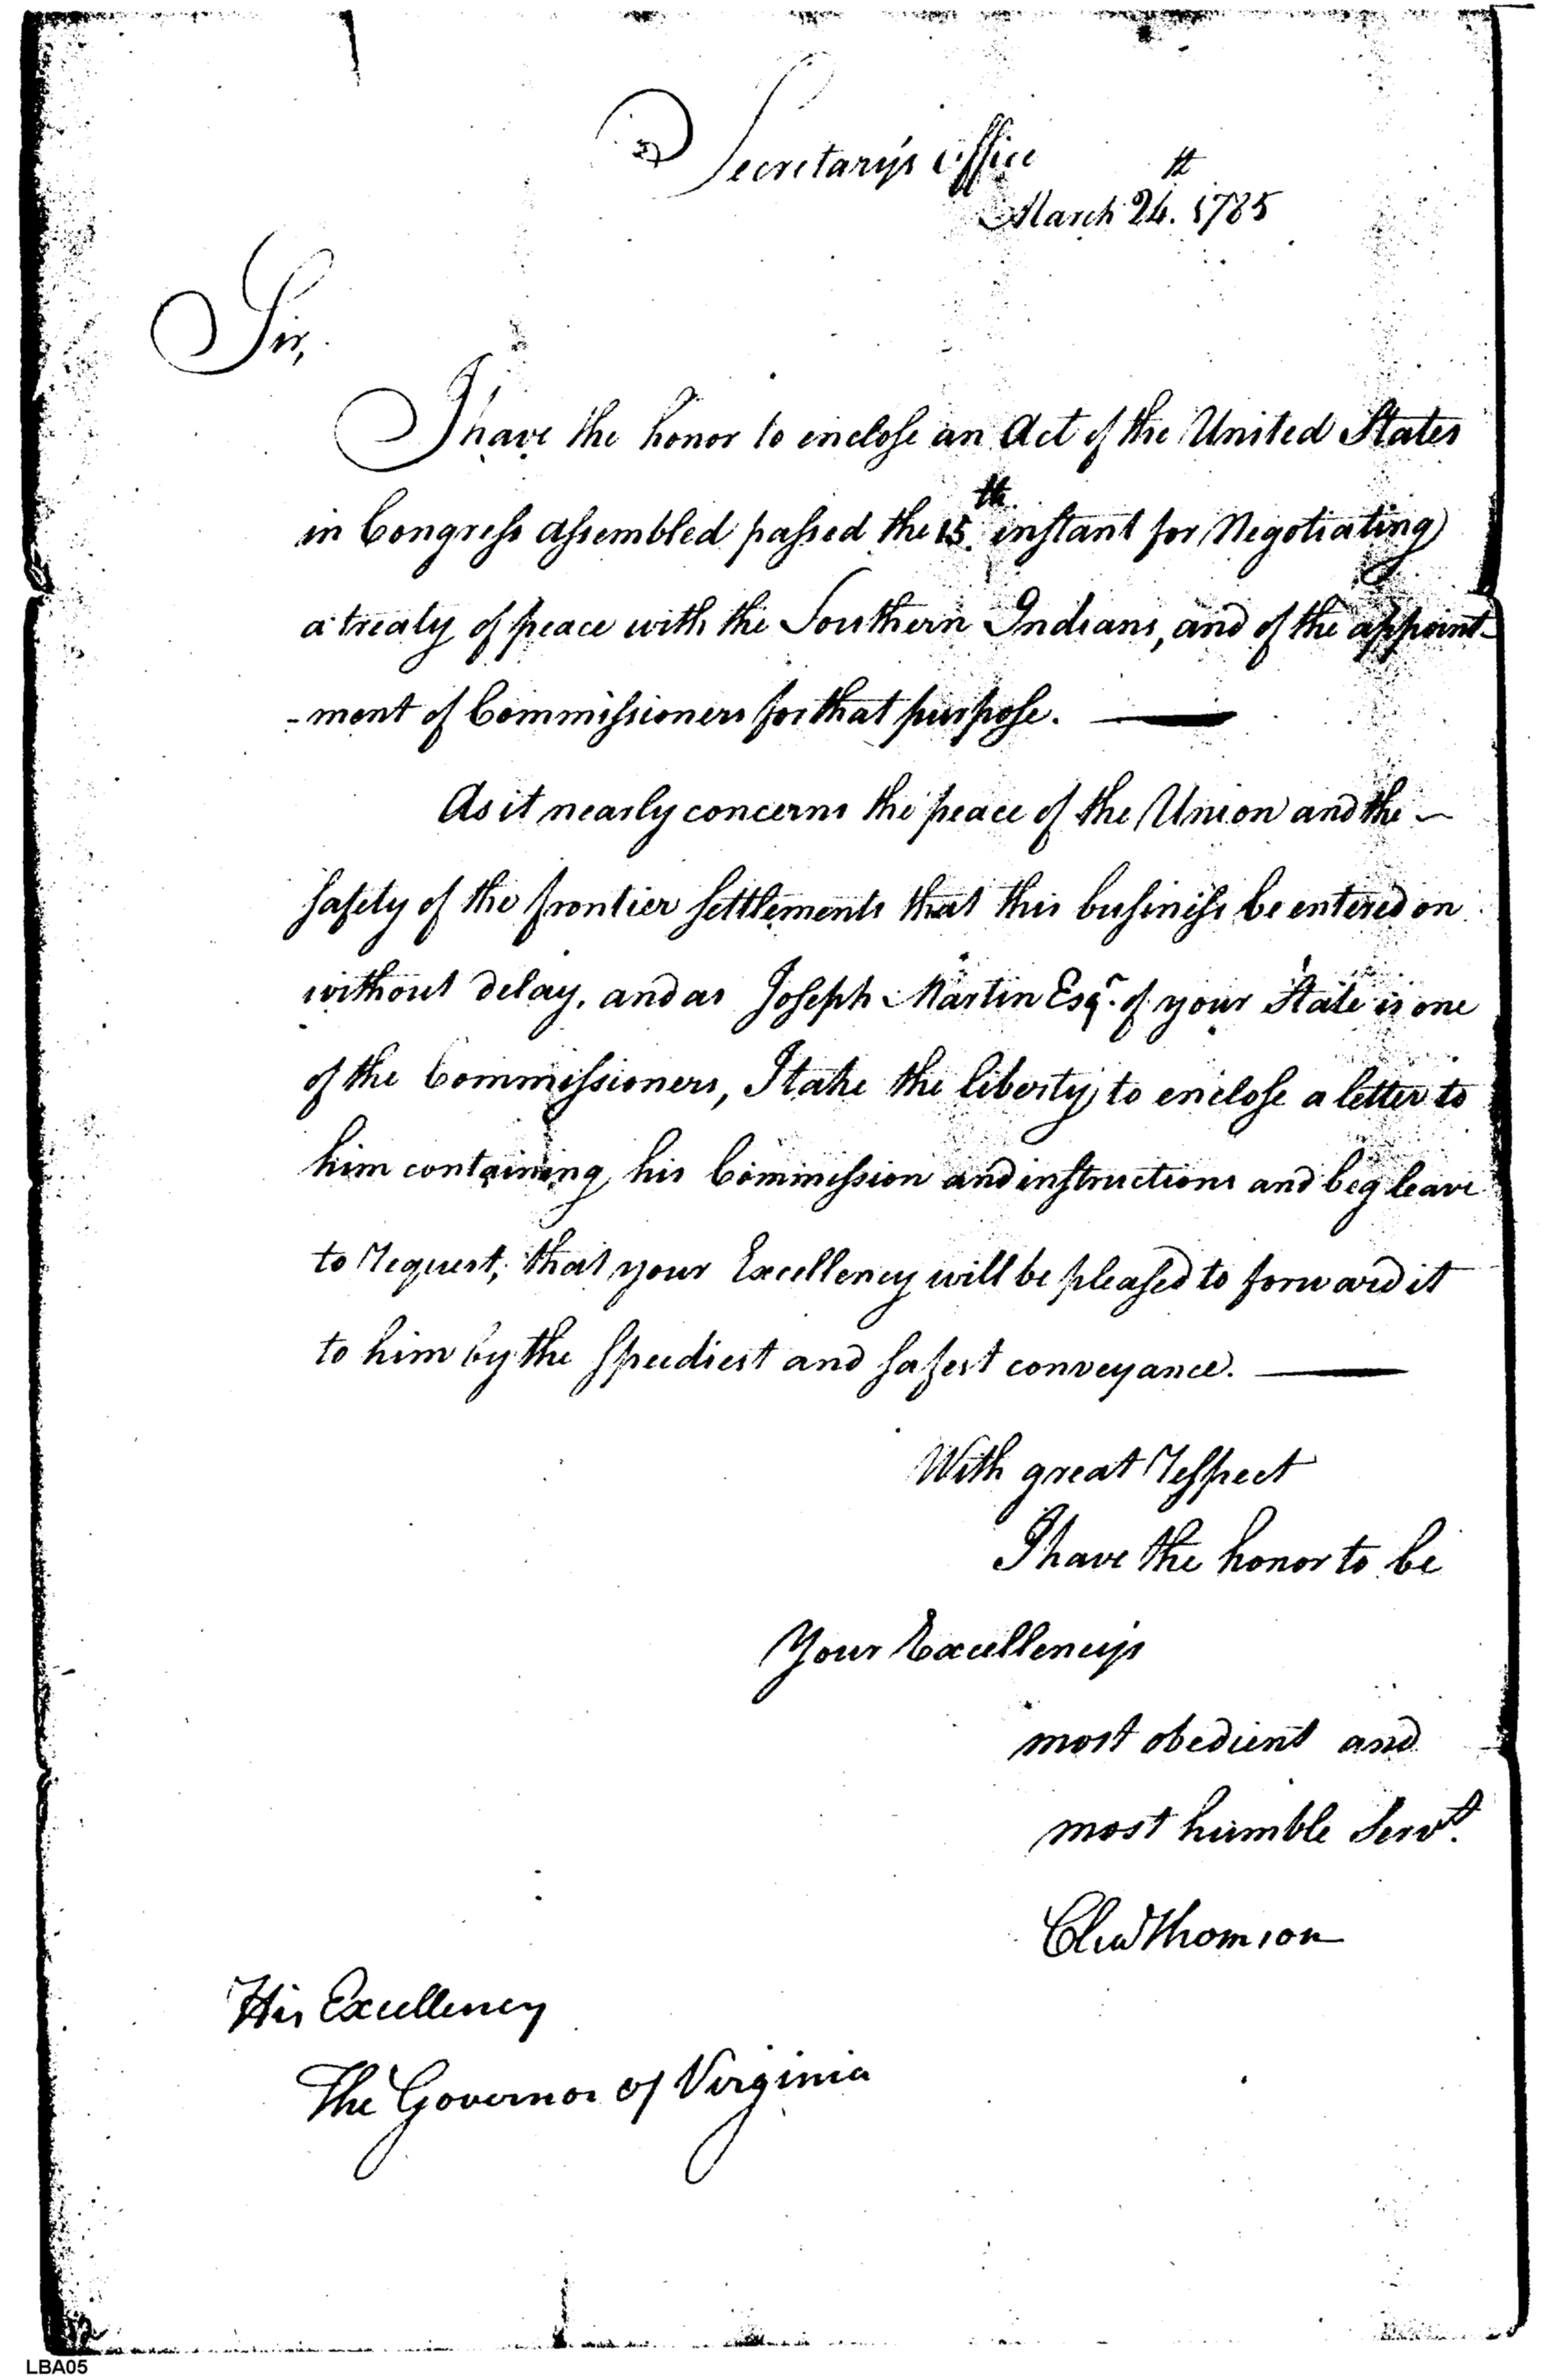 Secretary's office
March 24.th 1785
Sir,
I have the honor to enclose an Act of the United States
in Congress assembled passed the 15th. instant for Negotiating
a treaty of peace with the Southern Indians, and of the appoint-
-ment of Commissioners for that purpose. —
As it nearly concerns the peace of the Union and the —
safety of the frontier settlements that this business be entered on
without delay, and as Joseph Martin Esqr. of your State is one
of the Commissioners, I take the liberty to enclose a letter to
him containing his Commission and instructions and beg leave
to request, that your Excellency will be pleased to forward it
to him by the speediest and safest conveyance. —
With great respect
I have the honor to be
Your Excellency's
most obedient and
most humble Servt.
Chas Thomson
His Excellency
The Governor of Virginia
LBA05